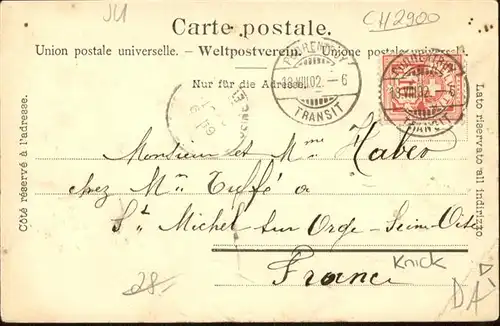 JU
CH2900
Carte postale.
Union postale universelle. – Weltpostverein. – Unione postale universale
Nur für die Adresse.
PORRENTRUY
13.VIII.02.–6
TRANSIT
PORRENTRUY
13.VIII.02.–6
TRANSIT
Côté réservé à l'adresse.
Lato riservato all'indirizzo
Monsieur et Mme Haber
chez Mr Tuffé a
St Michel sur Orge - Seine Oise
France
Knick
28.-